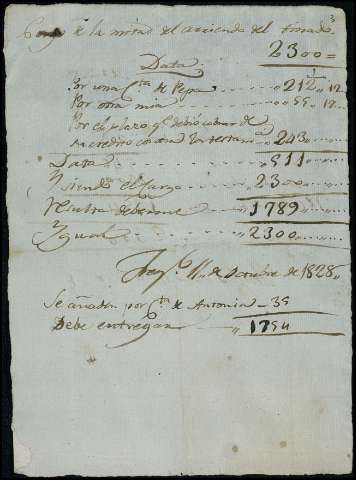 3
Cargo de la mitad del arriendo del
2300=
Data
Por una Cta de Pepa 212 12
Por otra mia 55 12
Por el plazo qe debio cobrar de
su credito contra 243
Data 511
Y siendo el cargo 2300
resulta deberme 1789
Ygual 2300
11 de Octubre de 1828
Se añaden por Cta de Antonia 35
Debe entregar 1754